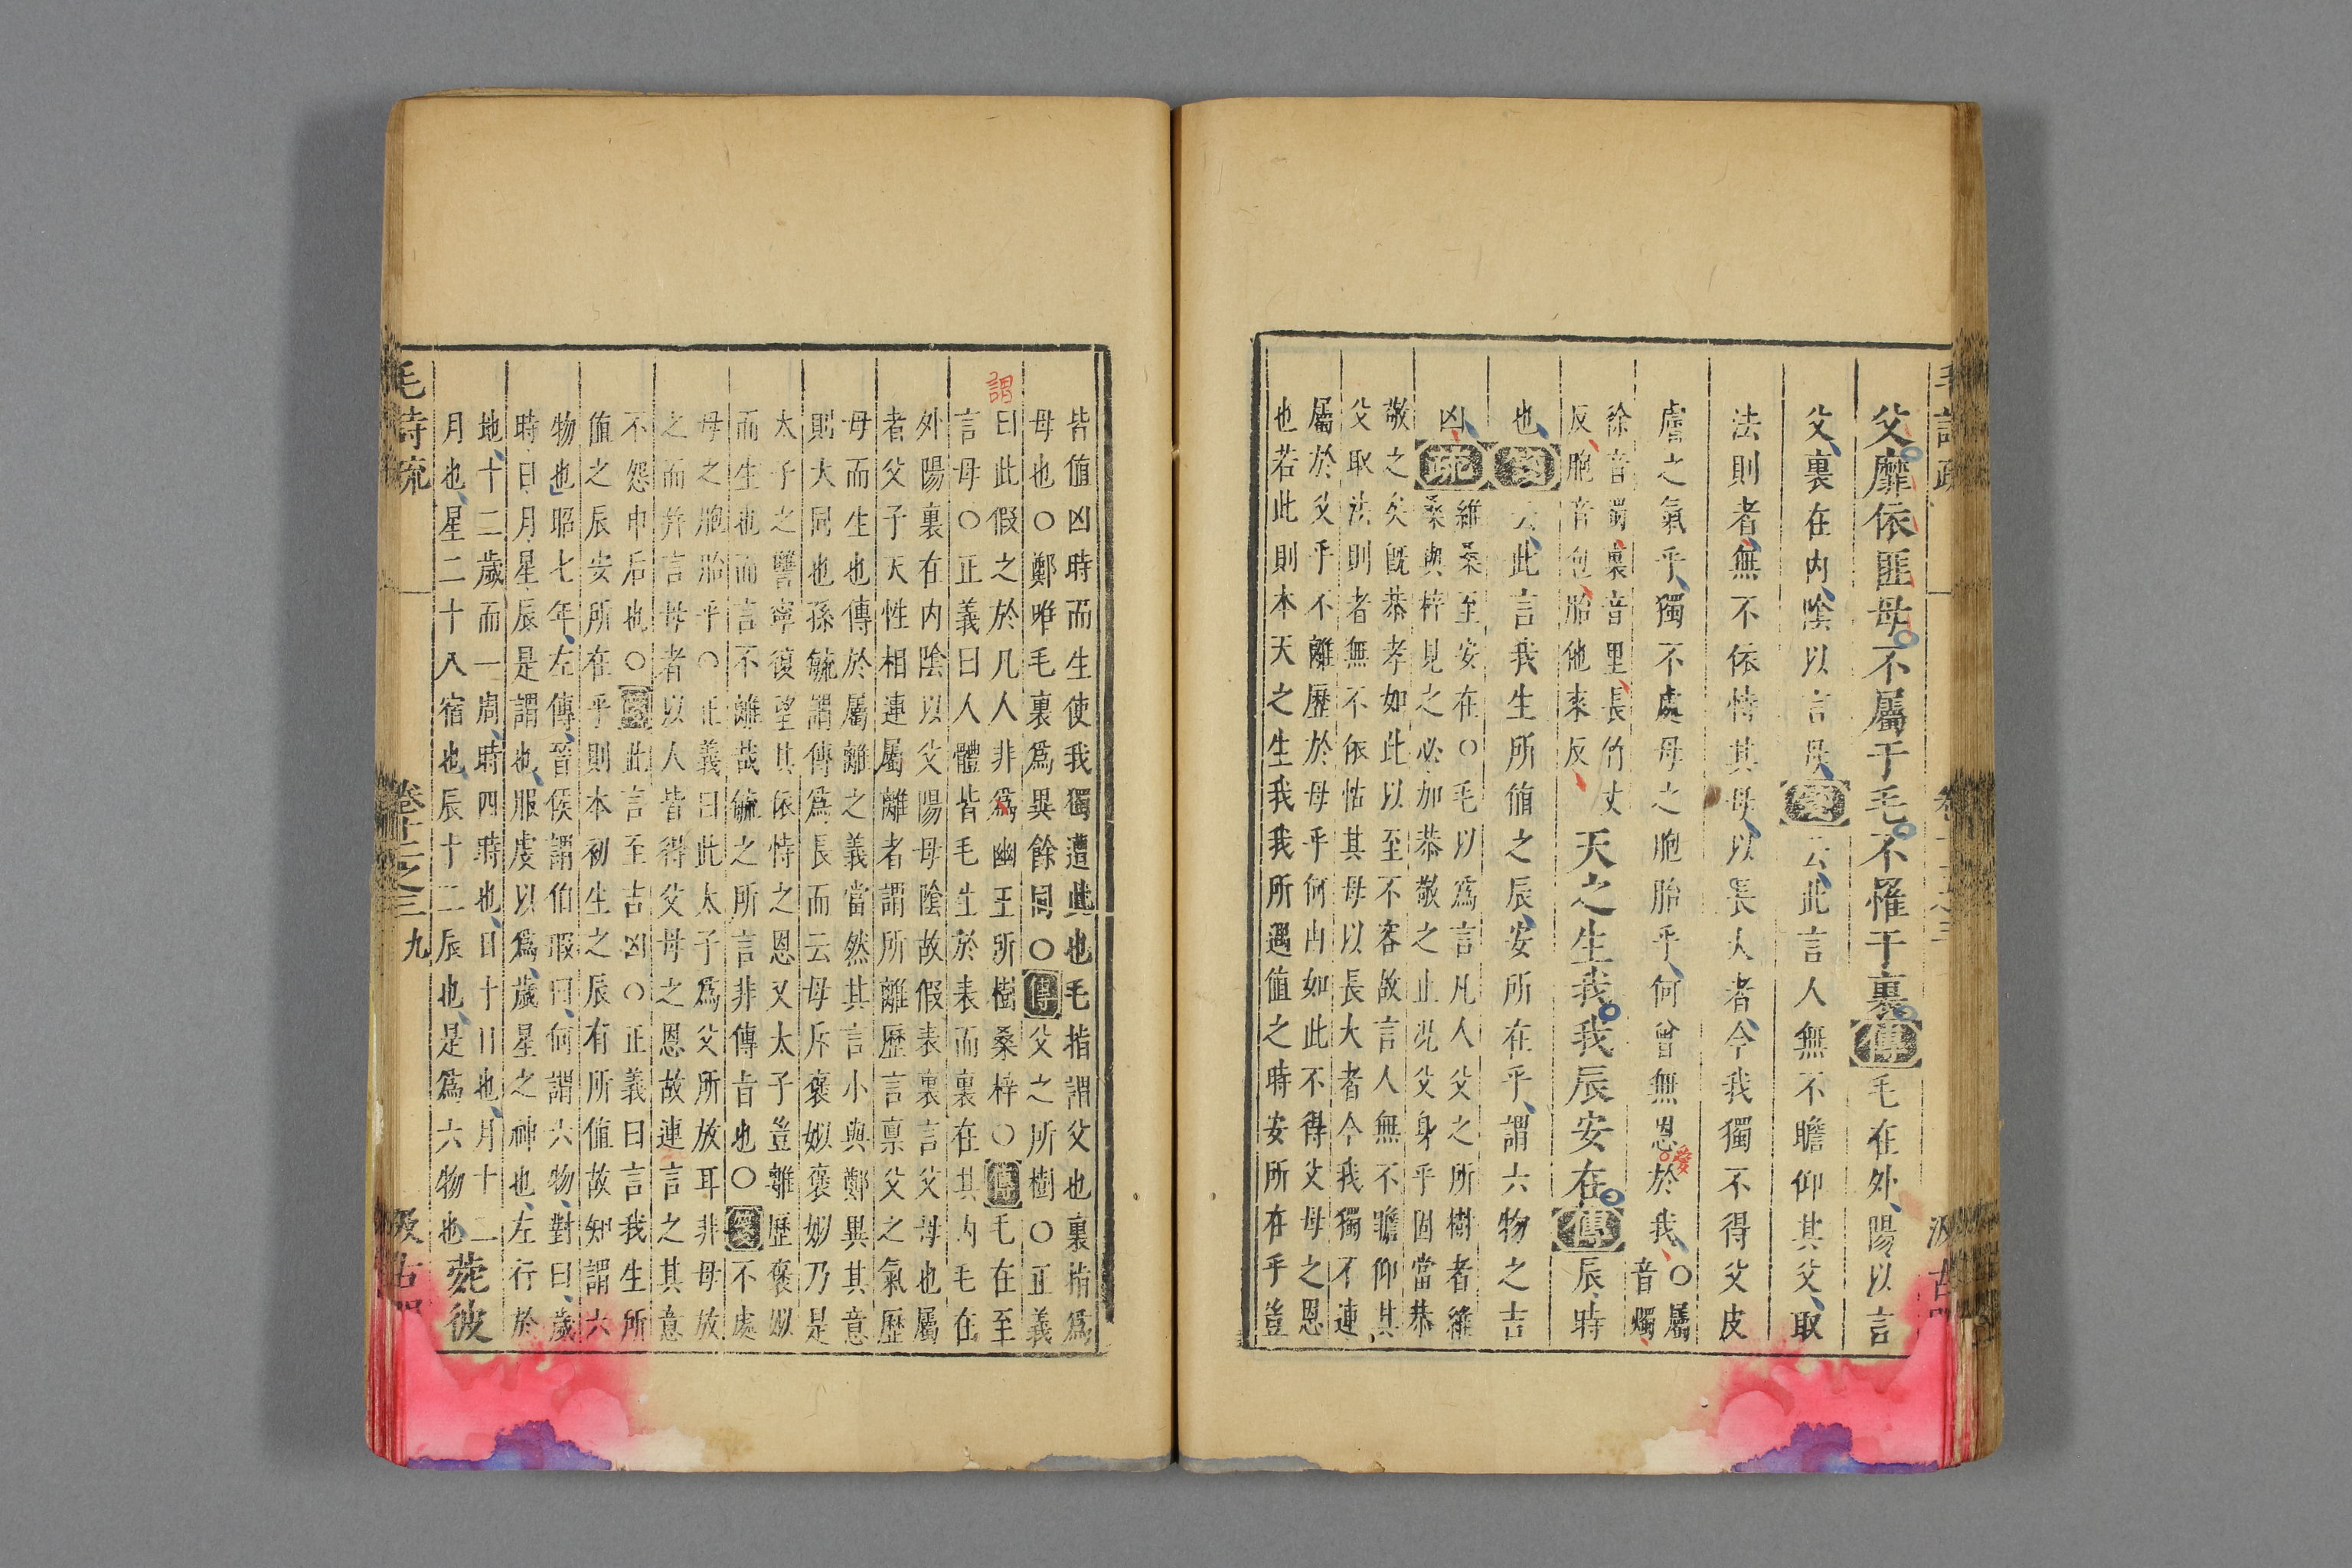 毛詩疏
卷十二之三
汲古
父靡依匪母不屬于毛不罹于裏傳毛在外陽以言
父裏在內陰以言母箋云此言人無不瞻仰其父取
法則者無不依恃其母以長大者今我獨不得父皮
膚之氣乎獨不處母之胞胎乎何曾無恩於我○屬
愛
音燭
徐音蜀裏音里長竹丈
反胞音包胎他來反
天之生我我辰安在傳辰時
也箋云此言我生所値之辰安所在乎謂六物之吉
凶疏
維桑至安在○毛以爲言凡人父之所樹者維
桑與梓見之必加恭敬之止況父身乎固當恭
敬之矣旣恭孝如此以至不容故言人無不瞻仰其
父取法則者無不依怙其母以長大者今我獨不連
屬於父乎不離歷於母乎何由如此不得父母之恩
也若此則本天之生我我所遇値之時安所在乎豈
皆値凶時而生使我獨遭此也毛指謂父也裏指爲
母也○鄭唯毛裏爲異餘同○傳父之所樹○正義
謂
曰此假之於凡人非爲幽王所樹桑梓○傳毛在至
言母○正義曰人體皆毛生於表而裏在其內毛在
外陽裏在內陰以父陽母陰故假表裏言父母也屬
者父子天性相連屬離者謂所離歷言稟父之氣歷
母而生也傳於屬離之義當然其言小與鄭異其意
則大同也孫毓謂傳爲長而云母斥褒姒褒姒乃是
太子之讐寧復望其依恃之恩又太子豈離歷褒姒
而生也而言不離哉毓之所言非傳旨也○箋不處
母之胞胎乎○正義曰此太子爲父所放耳非母放
之而并言母者以人皆得父母之恩故連言之其意
不怨申后也○箋此言至吉凶○正義曰言我生所
値之辰安所在乎則本初生之辰有所値故知謂六
物也昭七年左傳晉侯謂伯瑕曰何謂六物對曰歲
時日月星辰是謂也服虔以爲歲星之神也左行於
地十二歲而一周時四時也日十日也月十二
月也星二十八宿也辰十二辰也是爲六物也
菀彼
毛詩疏
卷十二之三
九
汲古